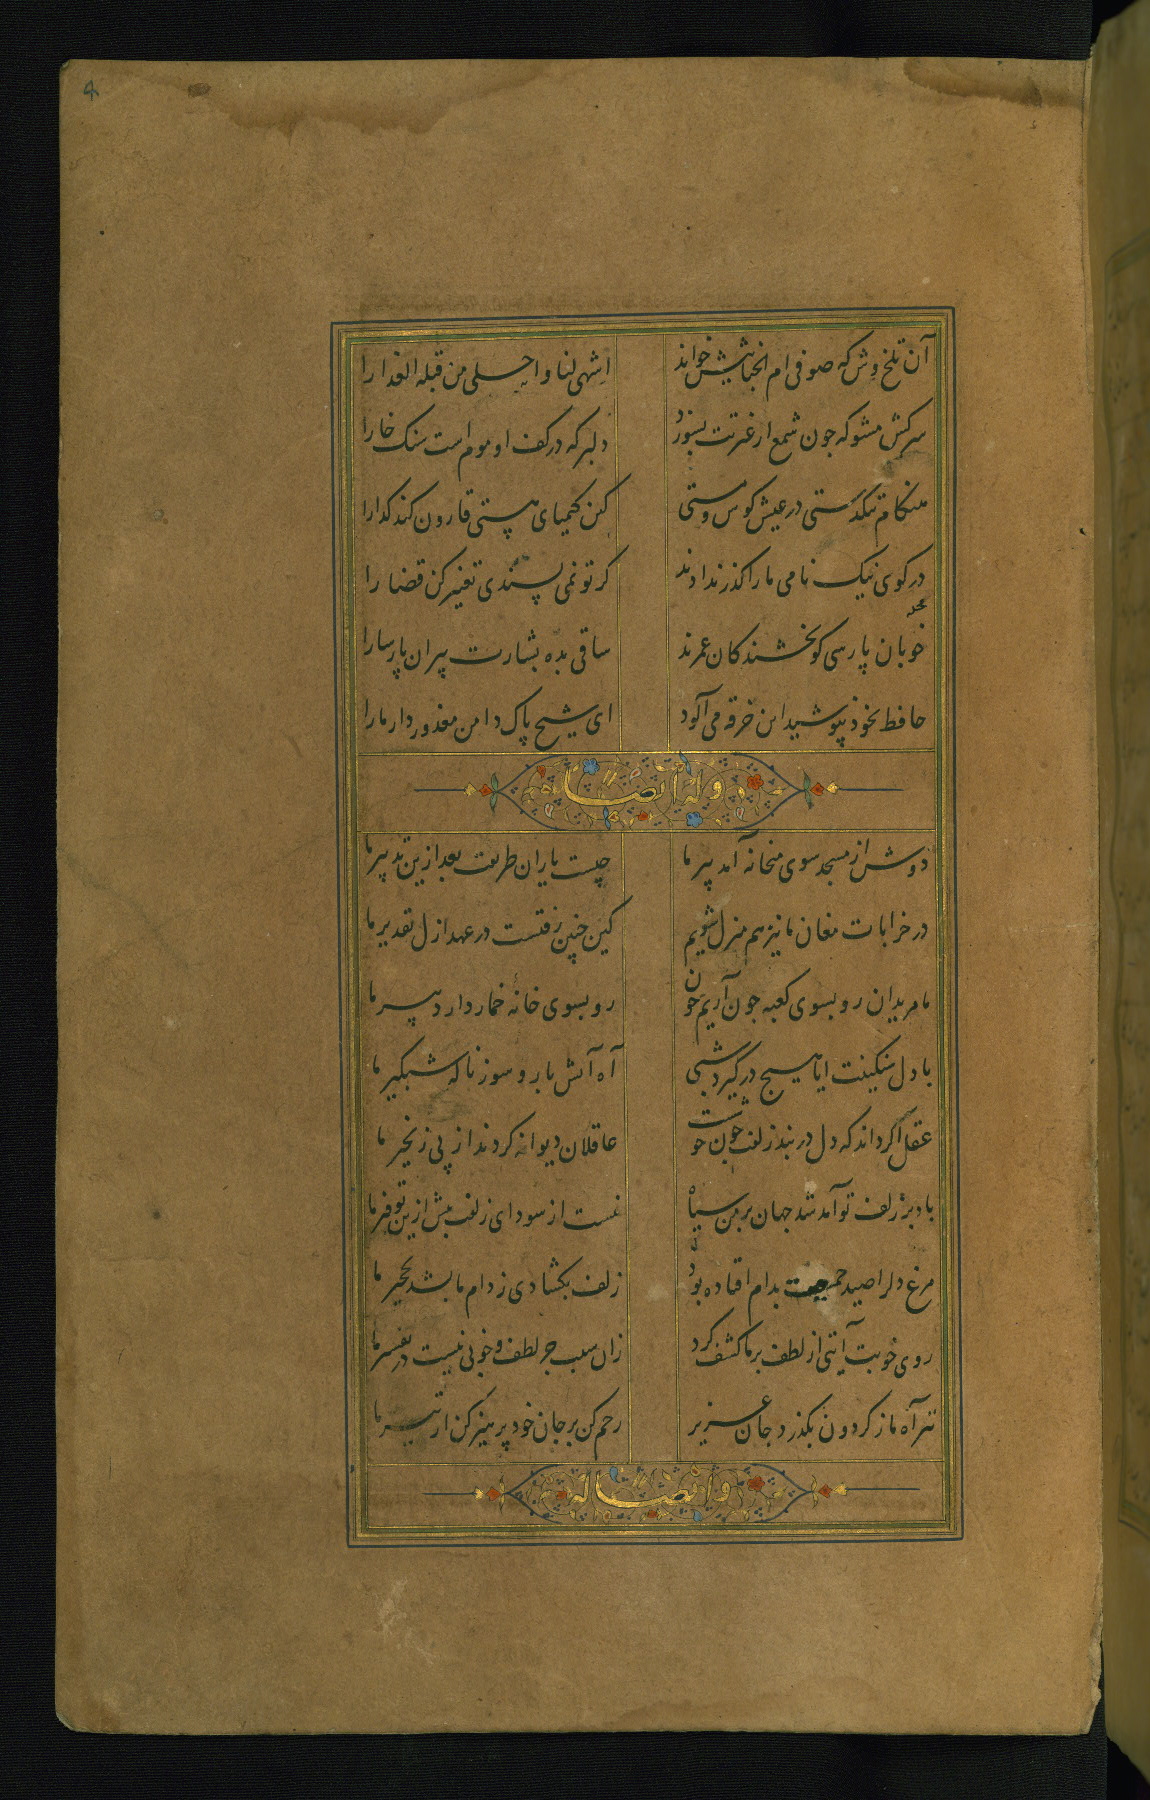 آن تلخ وش که صوفی ام الخبائثش خواند اشهی لنا واحلی من قبله العذارا
سرکش مشو که چون شمع از غیرتت بسوزد دلبر که در کف او موم است سنک خارا
هنکام تنکدستی در عیش کوش و مستی کین کیمیای هستی قارون کند کدا را
در کوی نیک نامی ما را کذر ندادند کر تو نمی پسندی تغییر کن قضا را
خوبان پارسی کو بخشندکان عمرند ساقی بده بشارت پیران پارسا را
حافظ بخوذ نپوشید این خرقه می آلود ای شیخ پاک دامن معذور دار ما را
وله ایضا
دوش از مسجد سوی میخانه آمد پیر ما چیست یاران طریقت بعد ازین تدبیر ما
در خرابات مغان ما نیز هم منزل شویم کین چنین رفتست در عهد ازل تقدیر ما
ما مریدان رو بسوی کعبه چون آریم چون رو بسوی خانهٔ خمار دارد پیر ما
با دل سنکینت ایا هیچ درکیرد شبی آه آتش بار و سوز ناله شبکیر ما
عقل اکر داند که دل در بند زلفت چون خوشست عاقلان دیوانه کردند از پی زنجیر ما
باد بر زلف تو آمد شد جهان بر من سیاه نیست از سودای زلفت بیش ازین توفیر ما
مرغ دل را صید جمعیت بدام افتاده بود زلف بکشادی ز دام ما بشد نخجیر ما
روی خوبت آیتی از لطف بر ما کشف کرد زان سبب جز لطف و خوبی نیست در تفسیر ما
تیر آه ما ز کردون بکذرد جان عزیز رحم کن بر جان خود پرهیز کن از تیر ما
وایضا له